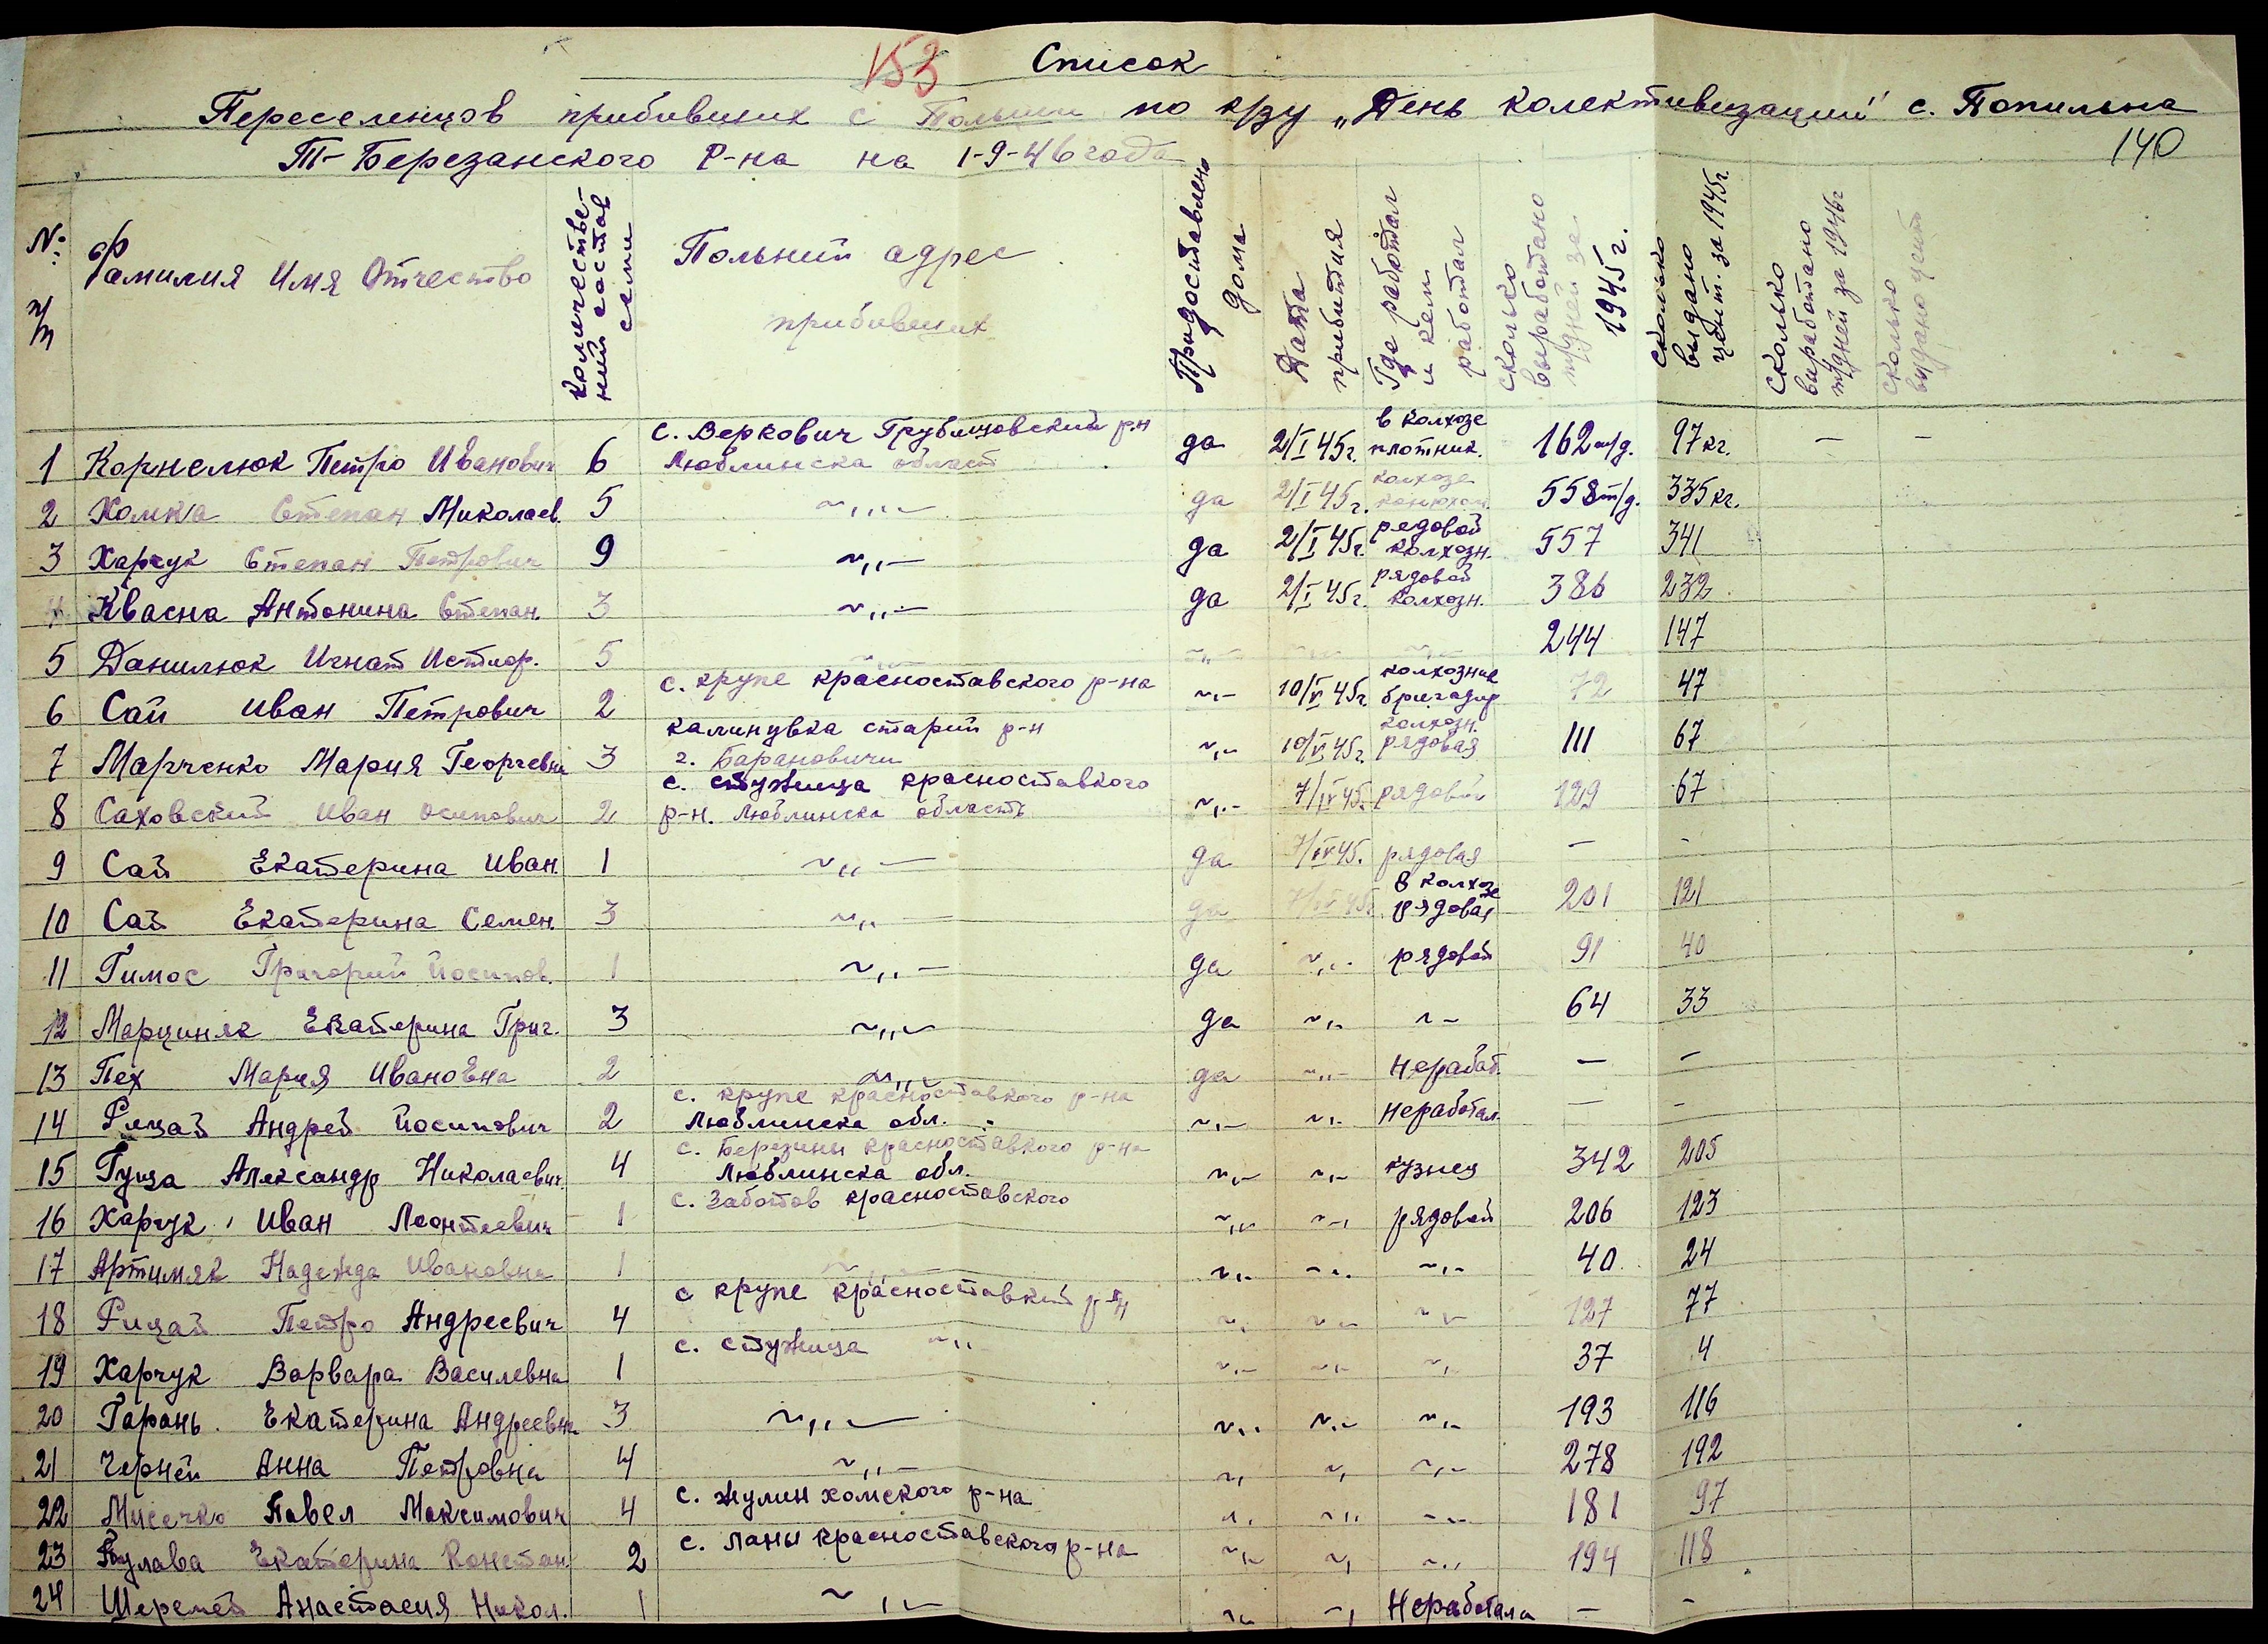 153 Список
Переселенцов прибивших с Польши по к/зу „День колективизации" с. Попильна
140
Т-Березанского р-на на 1-9-46 года
№ п/п
Фамилия Имя Отчество
количественний состав семи
Польний адрес прибивших
Придоставлено дома
Дата прибития
Где работал и кем работал
сколько выработано т/дней за 1945 г.
сколько видано цент. за 1945г.
сколько виработано т/дней за 1946г
сколько выдано цент
1 Корнелюк Петро Иванович 6 с. Веркович Грубешовский р.н Люблинска област да 2/I 45г. в колхозе плотник. 162 т/д. 97кг. – –
2 Хомка Степан Миколаев. 5 ~,,– да 2/I 45г. колхозе конюхом 558 т/д. 335кг.
3 Харчук Степан Петрович 9 ~,,– да 2/I 45г. редовой колхозн. 557 341
4 Квасна Антонина Степан. 3 ~,,– да 2/I 45г. рядовой колхозн. 386 232
5 Данилюк Игнат 5 ~,,– ~,,– ~,,– ~,,– 244 147
6 Сай Иван Петрович 2 с. крупе красноставского р-на ~,– 10/V 45г колхозник бригадир 72 47
7 Марченко Мария Георгевна 3 калинувка старий р-н г. Барановичи ~,– 10/V 45г. колхозн. рядовая 111 67
8 Саховский Иван Осипович 2 с. стужица красноставкого р-н. Люблинска область ~,,– 7/IV 45. рядовий 129 67
9 Сай Екатерина Иван. 1 ~,,– да 7/IV 45. рядовая – –
10 Сай Екатерина Семен. 3 ~,,– да 7/IV 45г. в колхозе рядовая 201 121
11 Гимос Григорий Йосипов. 1 ~,,– да ~,,– рядовой 91 40
12 Марциняк Екатерина Григ. 3 ~,,– да ~,,– ~– 64 33
13 Пех Мария Ивановна 2 ~,,– да ~,,– Нерабат. – –
14 Рицай Андрей Йосипович 2 с. крупе красноставкого р-на Люблинска обл. ~,,– ~,– Неработал. – –
15 Гуща Александр Николаевич. 4 с. Березини красноставкого р-на Люблинска обл. ~,,– ~,,– кузнец 342 205
16 Харчук Иван Леонтиевич 1 с. Заботов красноставского ~,,– ~–, рядовой 206 123
17 Артимяк Надежда Ивановна 1 ~,,– ~,,– ~,,– ~,,– 40 24
18 Рицай Петро Андреевич 4 с крупе красноставкий р-н ~,– ~,– ~,– 127 77
19 Харчук Варвара Василевна 1 с. стужица ~,, ~,,– ~,,– ~,– 37 4
20 Гарань. Екатерина Андреевна 3 ~,,– ~,,– ~,,– ~,,– 193 116
21 Черней Анна Петровна 4 ~,,– ~, ~, ~,,– 278 192
22 Мисечко Павел Максимович 4 с. жулин хомского р-на ~,– ~,,– ~,– 181 97
23 Булава Екатерина Констан. 2 с. Ланы красноставского р-на ~,,– ~, ~,,– 194 118
24 Шеремей Анастасия Никол. 1 ~,,– ~,– ~, Неработала – –